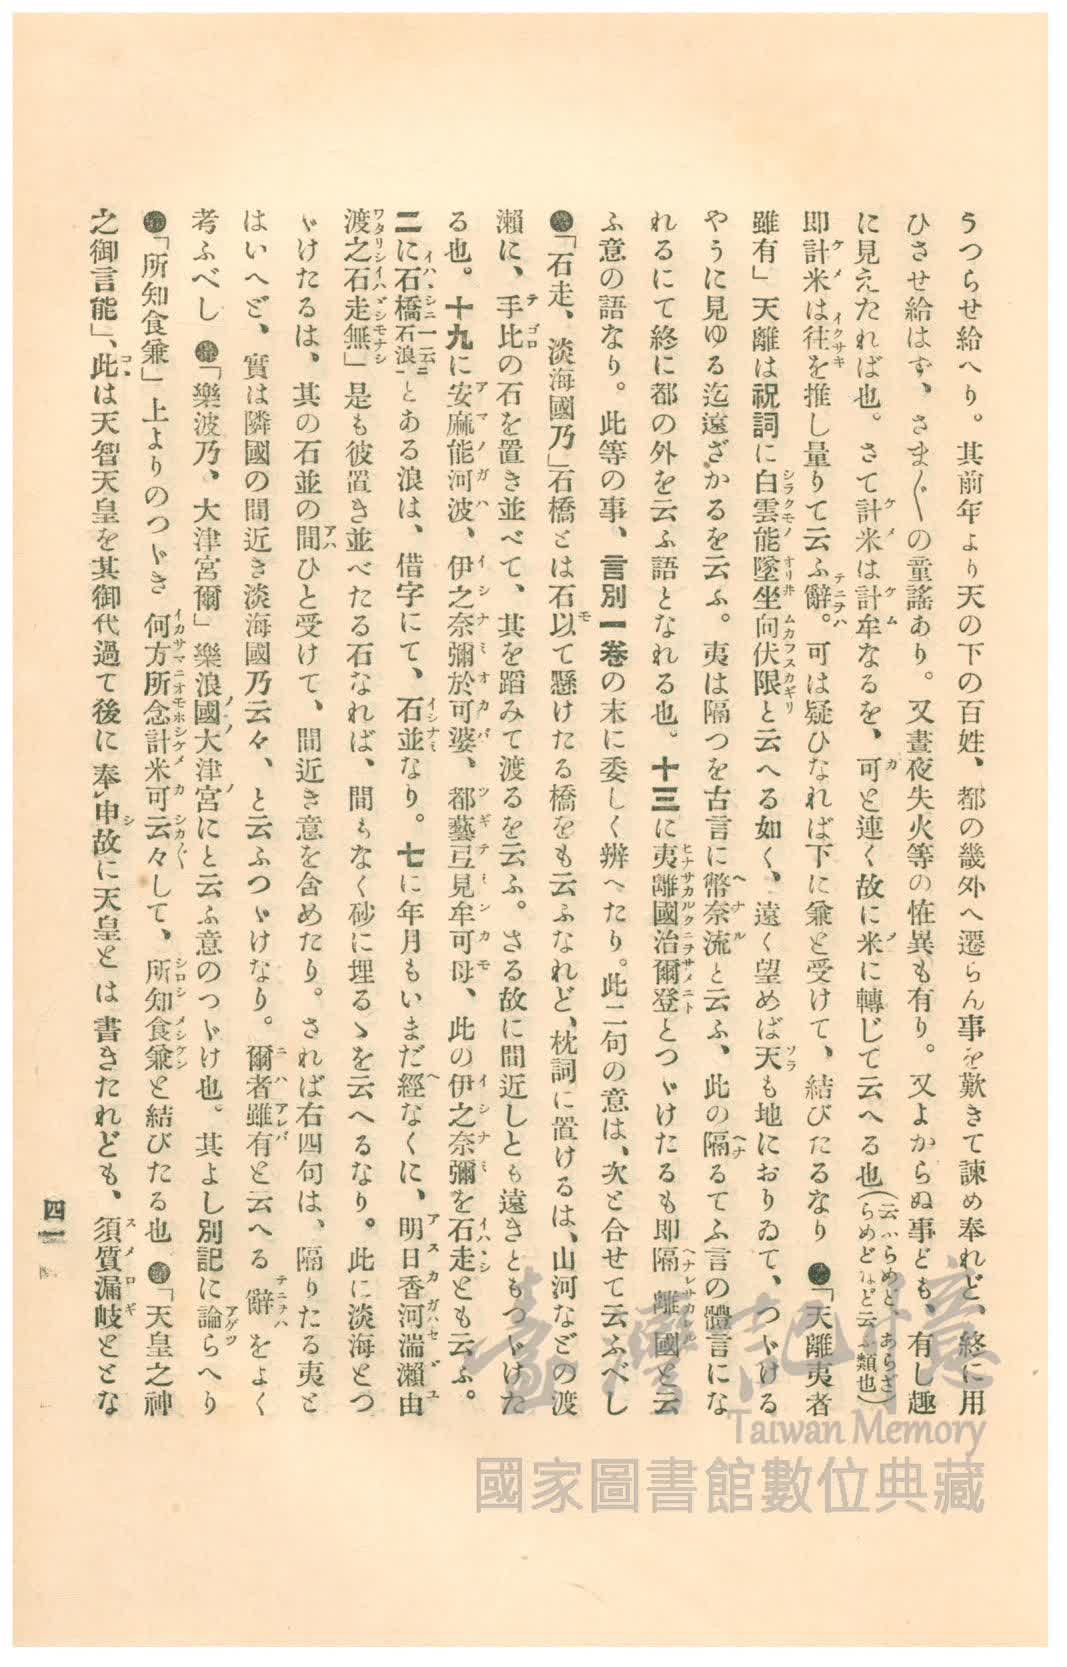 うつらせ給へり。其前年より天の下の百姓、都の畿外へ遷らん事を歎きて諫め奉れど、終に用
ひさせ給はず、さま〴〵の童謠あり。又晝夜失火等の恠異も有り。又よからぬ事ども、有し趣
に見えたれば也。さて計米は計牟なるを、可と連く故に米に轉じて云へる也（云ふらめと あらざらめどなど云ふ類也）
即計米は徃を推し量りて云ふ辭。可は疑ひなれば下に兼と受けて、結びたるなり ●「天離夷者
雖有」天離は祝詞に白雲能墜坐向伏限と云へる如く、遠く望めば天も地におりゐて、つゞける
やうに見ゆる迄遠ざかるを云ふ。夷は隔つを古言に幣奈流と云ふ、此の隔るてふ言の體言にな
れるにて終に都の外を云ふ語となれる也。十三に夷離國治爾登とつゞけたるも即隔離國と云
ふ意の語なり。此等の事、言別一卷の末に委しく辨へたり。此二句の意は、次と合せて云ふべし
●「石走、淡海國乃」石橋とは石以て懸けたる橋をも云ふなれど、枕詞に置けるは、山河などの渡
瀨に、手比の石を置き並べて、其を蹈みて渡るを云ふ。さる故に間近しとも遠きともつゞけた
る也。十九に安麻能河波、伊之奈彌於可婆、都藝弖見牟可母、此の伊之奈彌を石走とも云ふ。
二に石橋一云石浪とある浪は、借字にて、石並なり。七に年月もいまだ經なくに、明日香河湍瀨由
渡之石走無」是も彼置き並べたる石なれば、間もなく砂に埋るゝを云へるなり。此に淡海とつ
ゞけたるは、其の石並の間ひと受けて、間近き意を含めたり。されば右四句は、隔りたる夷と
はいへど、實は隣國の間近き淡海國乃云々、と云ふつゞけなり。爾者雖有と云へる辭をよく
考ふべし ●「樂波乃、大津宮爾」樂浪國大津宮にと云ふ意のつゞけ也。其よし別記に論らへり
●「所知食兼」上よりのつゞき 何方所念計米可云々して、所知食兼と結びたる也 ●「天皇之神
之御言能」、此は天智天皇を其御代過て後に奉申故に天皇とは書きたれども、須質漏岐ととな
四一
臺灣記憶
Taiwan Memory
國家圖書館數位典藏